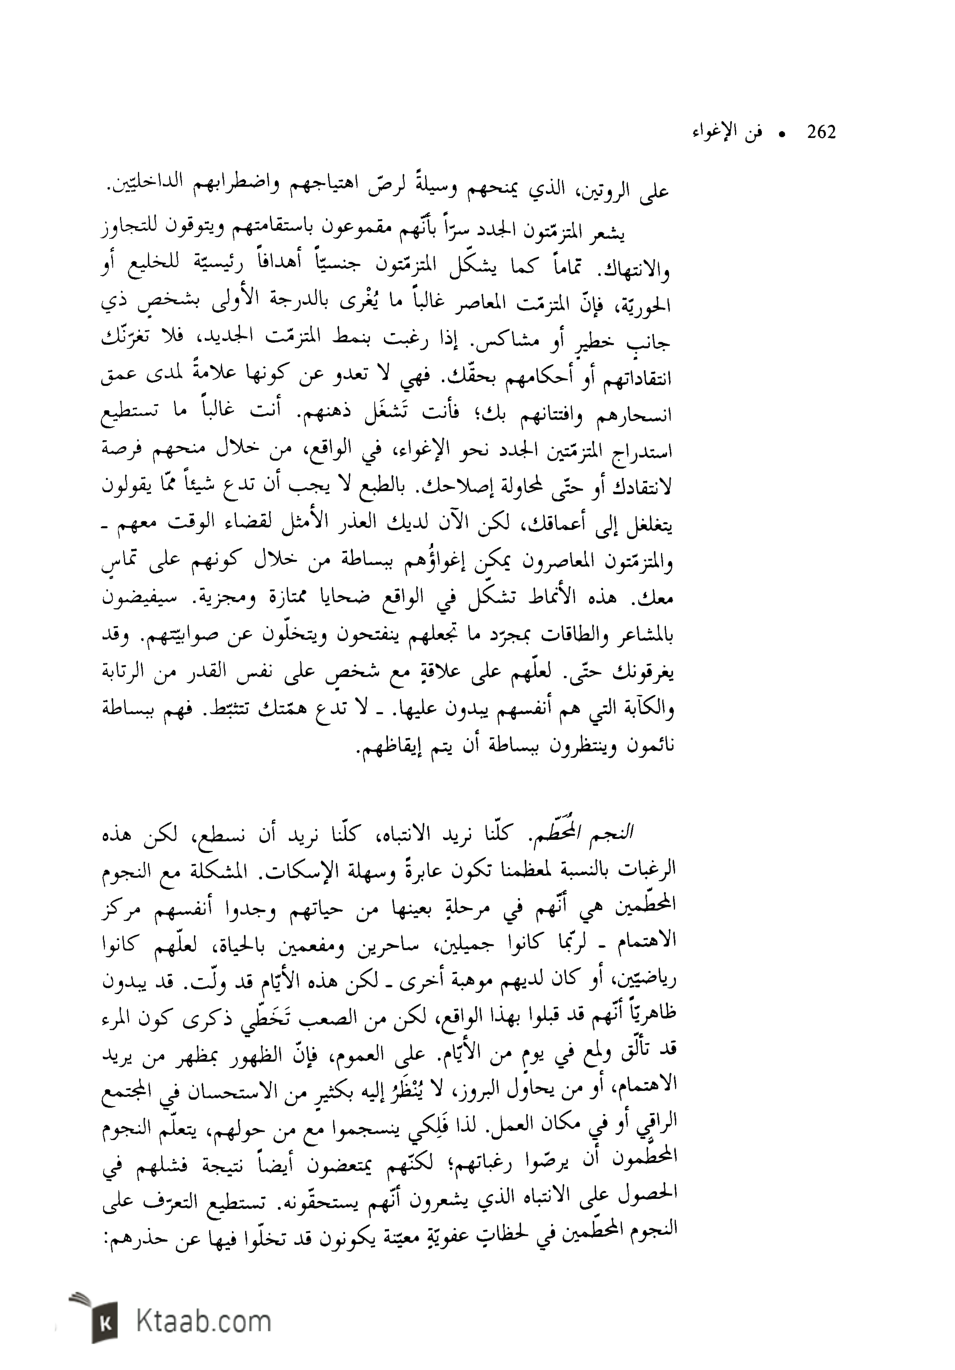 262 • فن الإغواء
على الروتين، الذي يمنحهم وسيلةً لرصّ اهتياجهم واضطرابهم الداخليّين.
يشعر المتزمّتون الجدد سرّاً بأنّهم مقموعون باستقامتهم ويتوقون للتجاوز
والانتهاك. تماماً كما يشكّل المتزمّتون جنسيّاً أهدافاً رئيسيّة للخليع أو
الحوريّة، فإنّ المتزمّت المعاصر غالباً ما يُغْرى بالدرجة الأولى بشخصٍ ذي
جانبٍ خطيرٍ أو مشاكس. إذا رغبت بنمط المتزمّت الجديد، فلا تغرّنّك
انتقاداتهم أو أحكامهم بحقّك. فهي لا تعدو عن كونها علامةً لمدى عمق
انسحارهم وافتتانهم بك؛ فأنت تَشغَل ذهنهم. أنت غالباً ما تستطيع
استدراج المتزمّتين الجدد نحو الإغواء، في الواقع، من خلال منحهم فرصة
لانتقادك أو حتّى لمحاولة إصلاحك. بالطبع لا يجب أن تدع شيئاً ممّا يقولون
يتغلغل إلى أعماقك، لكن الآن لديك العذر الأمثل لقضاء الوقت معهم ـ
والمتزمّتون المعاصرون يمكن إغواؤُهم ببساطة من خلال كونهم على تماسٍ
معك. هذه الأنماط تشكّل في الواقع ضحايا ممتازة ومجزية. سيفيضون
بالمشاعر والطاقات بمجرّد ما تجعلهم ينفتحون ويتخلّون عن صوابيّتهم. وقد
يغرقونك حتّى. لعلّهم على علاقةٍ مع شخصٍ على نفس القدر من الرتابة
والكآبة التي هم أنفسهم يبدون عليها. ـ لا تدع همّتك تتثبّط. فهم ببساطة
نائمون وينتظرون ببساطة أن يتم إيقاظهم.
النجم المُحَطّم. كلّنا نريد الانتباه، كلّنا نريد أن نسطع، لكن هذه
الرغبات بالنسبة لمعظمنا تكون عابرةً وسهلة الإسكات. المشكلة مع النجوم
المحطّمين هي أنّهم في مرحلةٍ بعينها من حياتهم وجدوا أنفسهم مركز
الاهتمام ـ لربّما كانوا جميلين، ساحرين ومفعمين بالحياة، لعلّهم كانوا
رياضيّين، أو كان لديهم موهبة أخرى ـ لكن هذه الأيّام قد ولّت. قد يبدون
ظاهريّاً أنّهم قد قبلوا بهذا الواقع، لكن من الصعب تَخَطّي ذكرى كون المرء
قد تألّق ولمع في يومٍ من الأيّام. على العموم، فإنّ الظهور بمظهر من يريد
الاهتمام، أو من يحاول البروز، لا يُنْظَرُ إليه بكثيرٍ من الاستحسان في المجتمع
الراقي أو في مكان العمل. لذا فَلِكي ينسجموا مع من حولهم، يتعلّم النجوم
المحطَّمون أن يرصّوا رغباتهم؛ لكنّهم يمتعضون أيضاً نتيجة فشلهم في
الحصول على الانتباه الذي يشعرون أنّهم يستحقّونه. تستطيع التعرّف على
النجوم المحطّمين في لحظاتٍ عفويّةٍ معيّنة يكونون قد تخلّوا فيها عن حذرهم:
K Ktaab.com